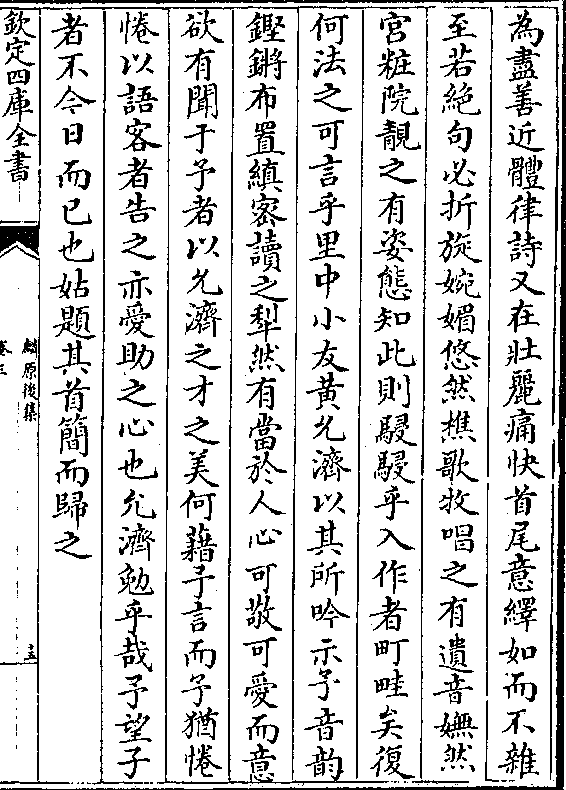 為盡善近體律詩又在壯麗痛快首尾意繹如而不雜
至若絕句必折旋婉媚悠然樵歌牧唱之有遺音嫵然
宮粧院靚之有姿態知此則駸駸乎入作者町畦矣復
何法之可言乎里中小友黄允濟以其所吟示予音韵
鏗鏘布置縝密讀之犁然有當於人心可敬可愛而意
欲有聞于予者以允濟之才之美何藉予言而予猶惓
惓以語客者告之亦愛助之心也允濟勉乎哉予望子
者不今日而已也姑題其首簡而歸之
欽定四庫全書
麟原後集
卷三
十五